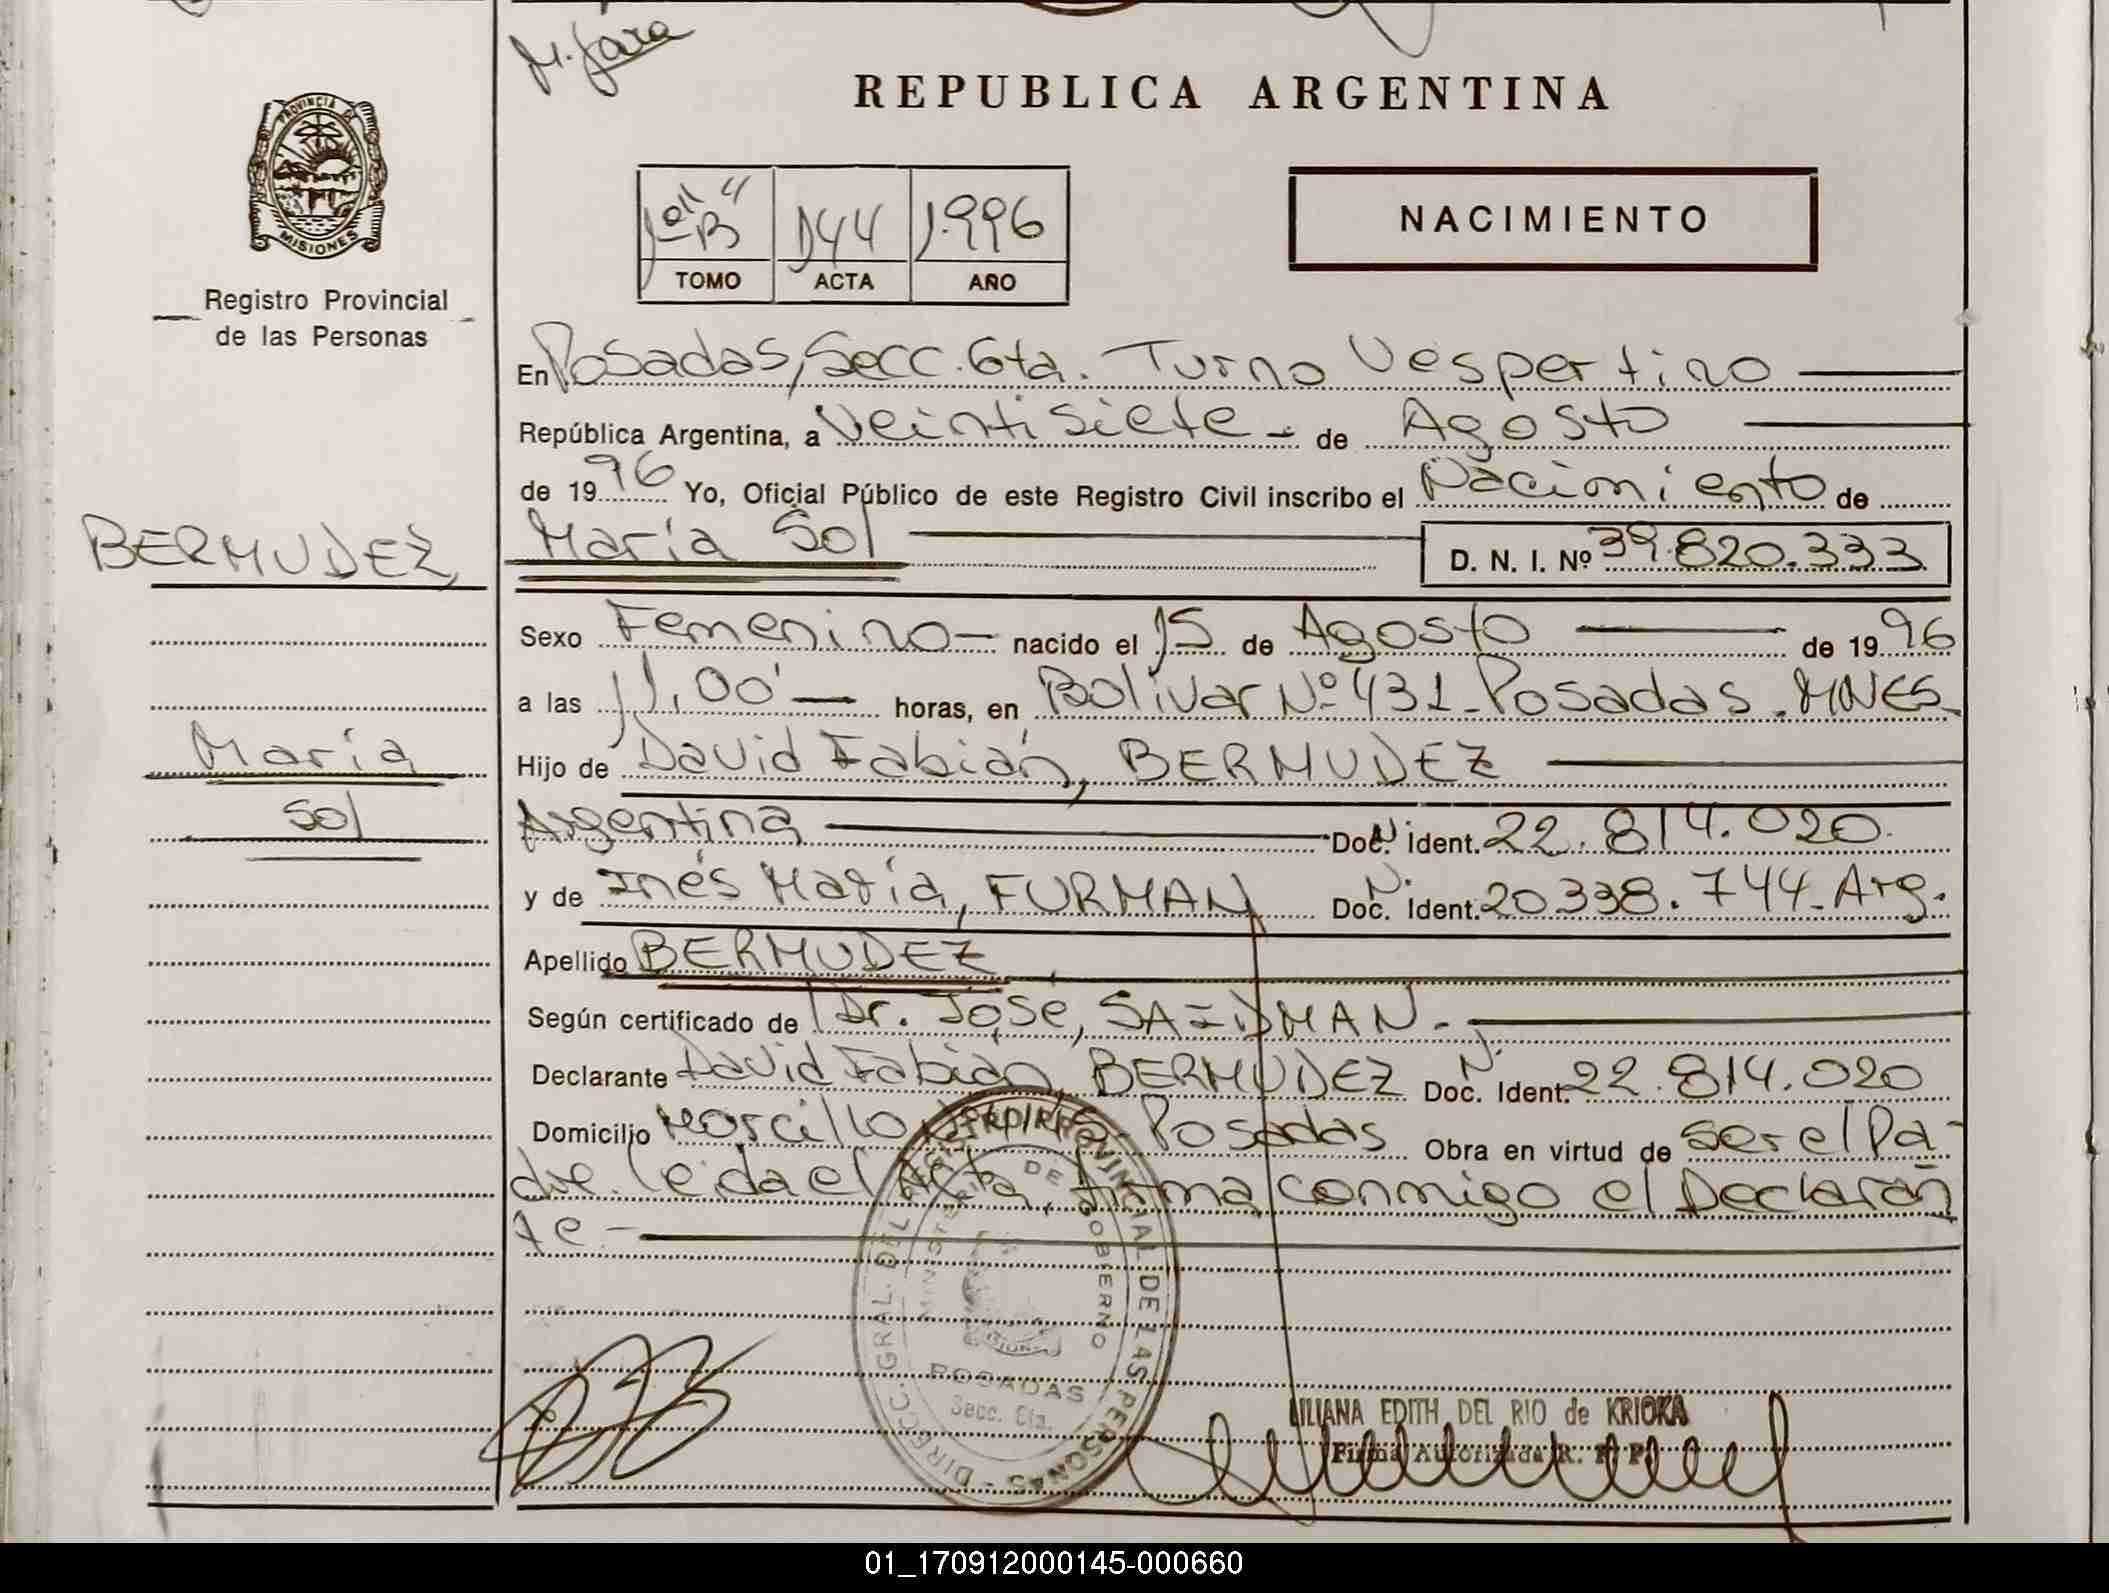 M. Jara
REPUBLICA ARGENTINA
PROVINCIA DE
MISIONES
Registro Provincial
de las Personas
1º "B" 144 1.996
TOMO ACTA AÑO
NACIMIENTO
En Posadas, Secc. 6ta. Turno Vespertino
República Argentina, a Veintisiete - de Agosto
de 1996 Yo, Oficial Público de este Registro Civil inscribo el Nacimiento de
BERMUDEZ, María Sol D. N. I. Nº 39.820.333
Sexo Femenino - nacido el 15 de Agosto de 1996
a las 11,00' horas, en Bolívar Nº 431 - Posadas. MNES.
María Hijo de David Fabián, BERMUDEZ
Sol Argentina Doc. N. Ident. 22.814.020.
y de Inés María, FURMAN Doc. N. Ident. 20.338.744 - Arg.
Apellido BERMUDEZ
Según certificado de Dr. José, SAIDMAN.-
Declarante David Fabián, BERMUDEZ Doc. N. Ident. 22.814.020
Domicilio Morcillo Posadas Obra en virtud de ser el Pa-
dre. Leida el Acta, firma conmigo el Declaran
te -
DIRECC. GRAL. DEL REGISTRO PROVINCIAL DE LAS PERSONAS -
MINISTERIO DE GOBIERNO
POSADAS
Secc. 6ta.
LILIANA EDITH DEL RIO de KRIOKA
Firma Autorizada R. P. P.
01_170912000145-000660